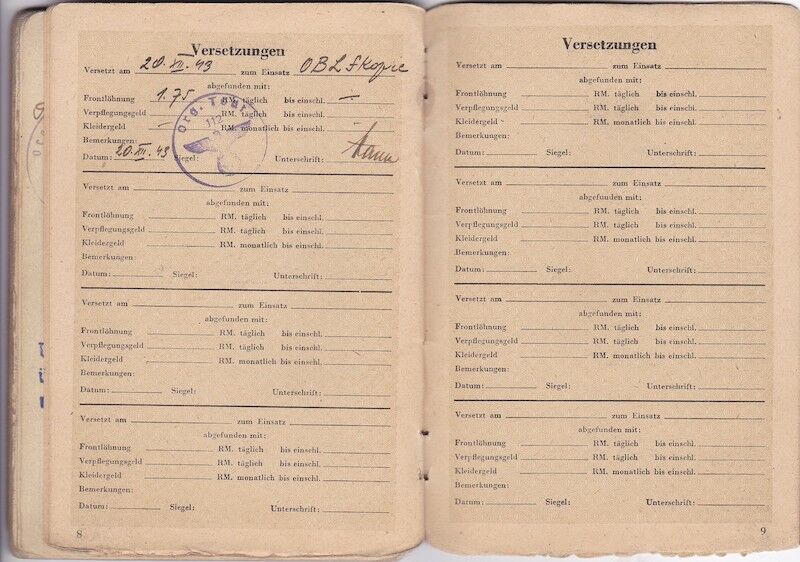 Versetzungen
Versetzt am 20. XII. 43 zum Einsatz OBL
abgefunden mit:
Frontlöhnung 1.75 RM. täglich bis einschl. —
Verpflegungsgeld RM. täglich bis einschl.
Kleidergeld — RM. monatlich bis einschl.
Bemerkungen:
Datum: 20. XII. 43 Siegel: Unterschrift:
Org. Todt
112
Versetzt am zum Einsatz
abgefunden mit:
Frontlöhnung RM. täglich bis einschl.
Verpflegungsgeld RM. täglich bis einschl.
Kleidergeld RM. monatlich bis einschl.
Bemerkungen:
Datum: Siegel: Unterschrift:
Versetzt am zum Einsatz
abgefunden mit:
Frontlöhnung RM. täglich bis einschl.
Verpflegungsgeld RM. täglich bis einschl.
Kleidergeld RM. monatlich bis einschl.
Bemerkungen:
Datum: Siegel: Unterschrift:
Versetzt am zum Einsatz
abgefunden mit:
Frontlöhnung RM. täglich bis einschl.
Verpflegungsgeld RM. täglich bis einschl.
Kleidergeld RM. monatlich bis einschl.
Bemerkungen:
Datum: Siegel: Unterschrift:
8
Versetzungen
Versetzt am zum Einsatz
abgefunden mit:
Frontlöhnung RM. täglich bis einschl.
Verpflegungsgeld RM. täglich bis einschl.
Kleidergeld RM. monatlich bis einschl.
Bemerkungen:
Datum: Siegel: Unterschrift:
Versetzt am zum Einsatz
abgefunden mit:
Frontlöhnung RM. täglich bis einschl.
Verpflegungsgeld RM. täglich bis einschl.
Kleidergeld RM. monatlich bis einschl.
Bemerkungen:
Datum: Siegel: Unterschrift:
Versetzt am zum Einsatz
abgefunden mit:
Frontlöhnung RM. täglich bis einschl.
Verpflegungsgeld RM. täglich bis einschl.
Kleidergeld RM. monatlich bis einschl.
Bemerkungen:
Datum: Siegel: Unterschrift:
Versetzt am zum Einsatz
abgefunden mit:
Frontlöhnung RM. täglich bis einschl.
Verpflegungsgeld RM. täglich bis einschl.
Kleidergeld RM. monatlich bis einschl.
Bemerkungen:
Datum: Siegel: Unterschrift:
9